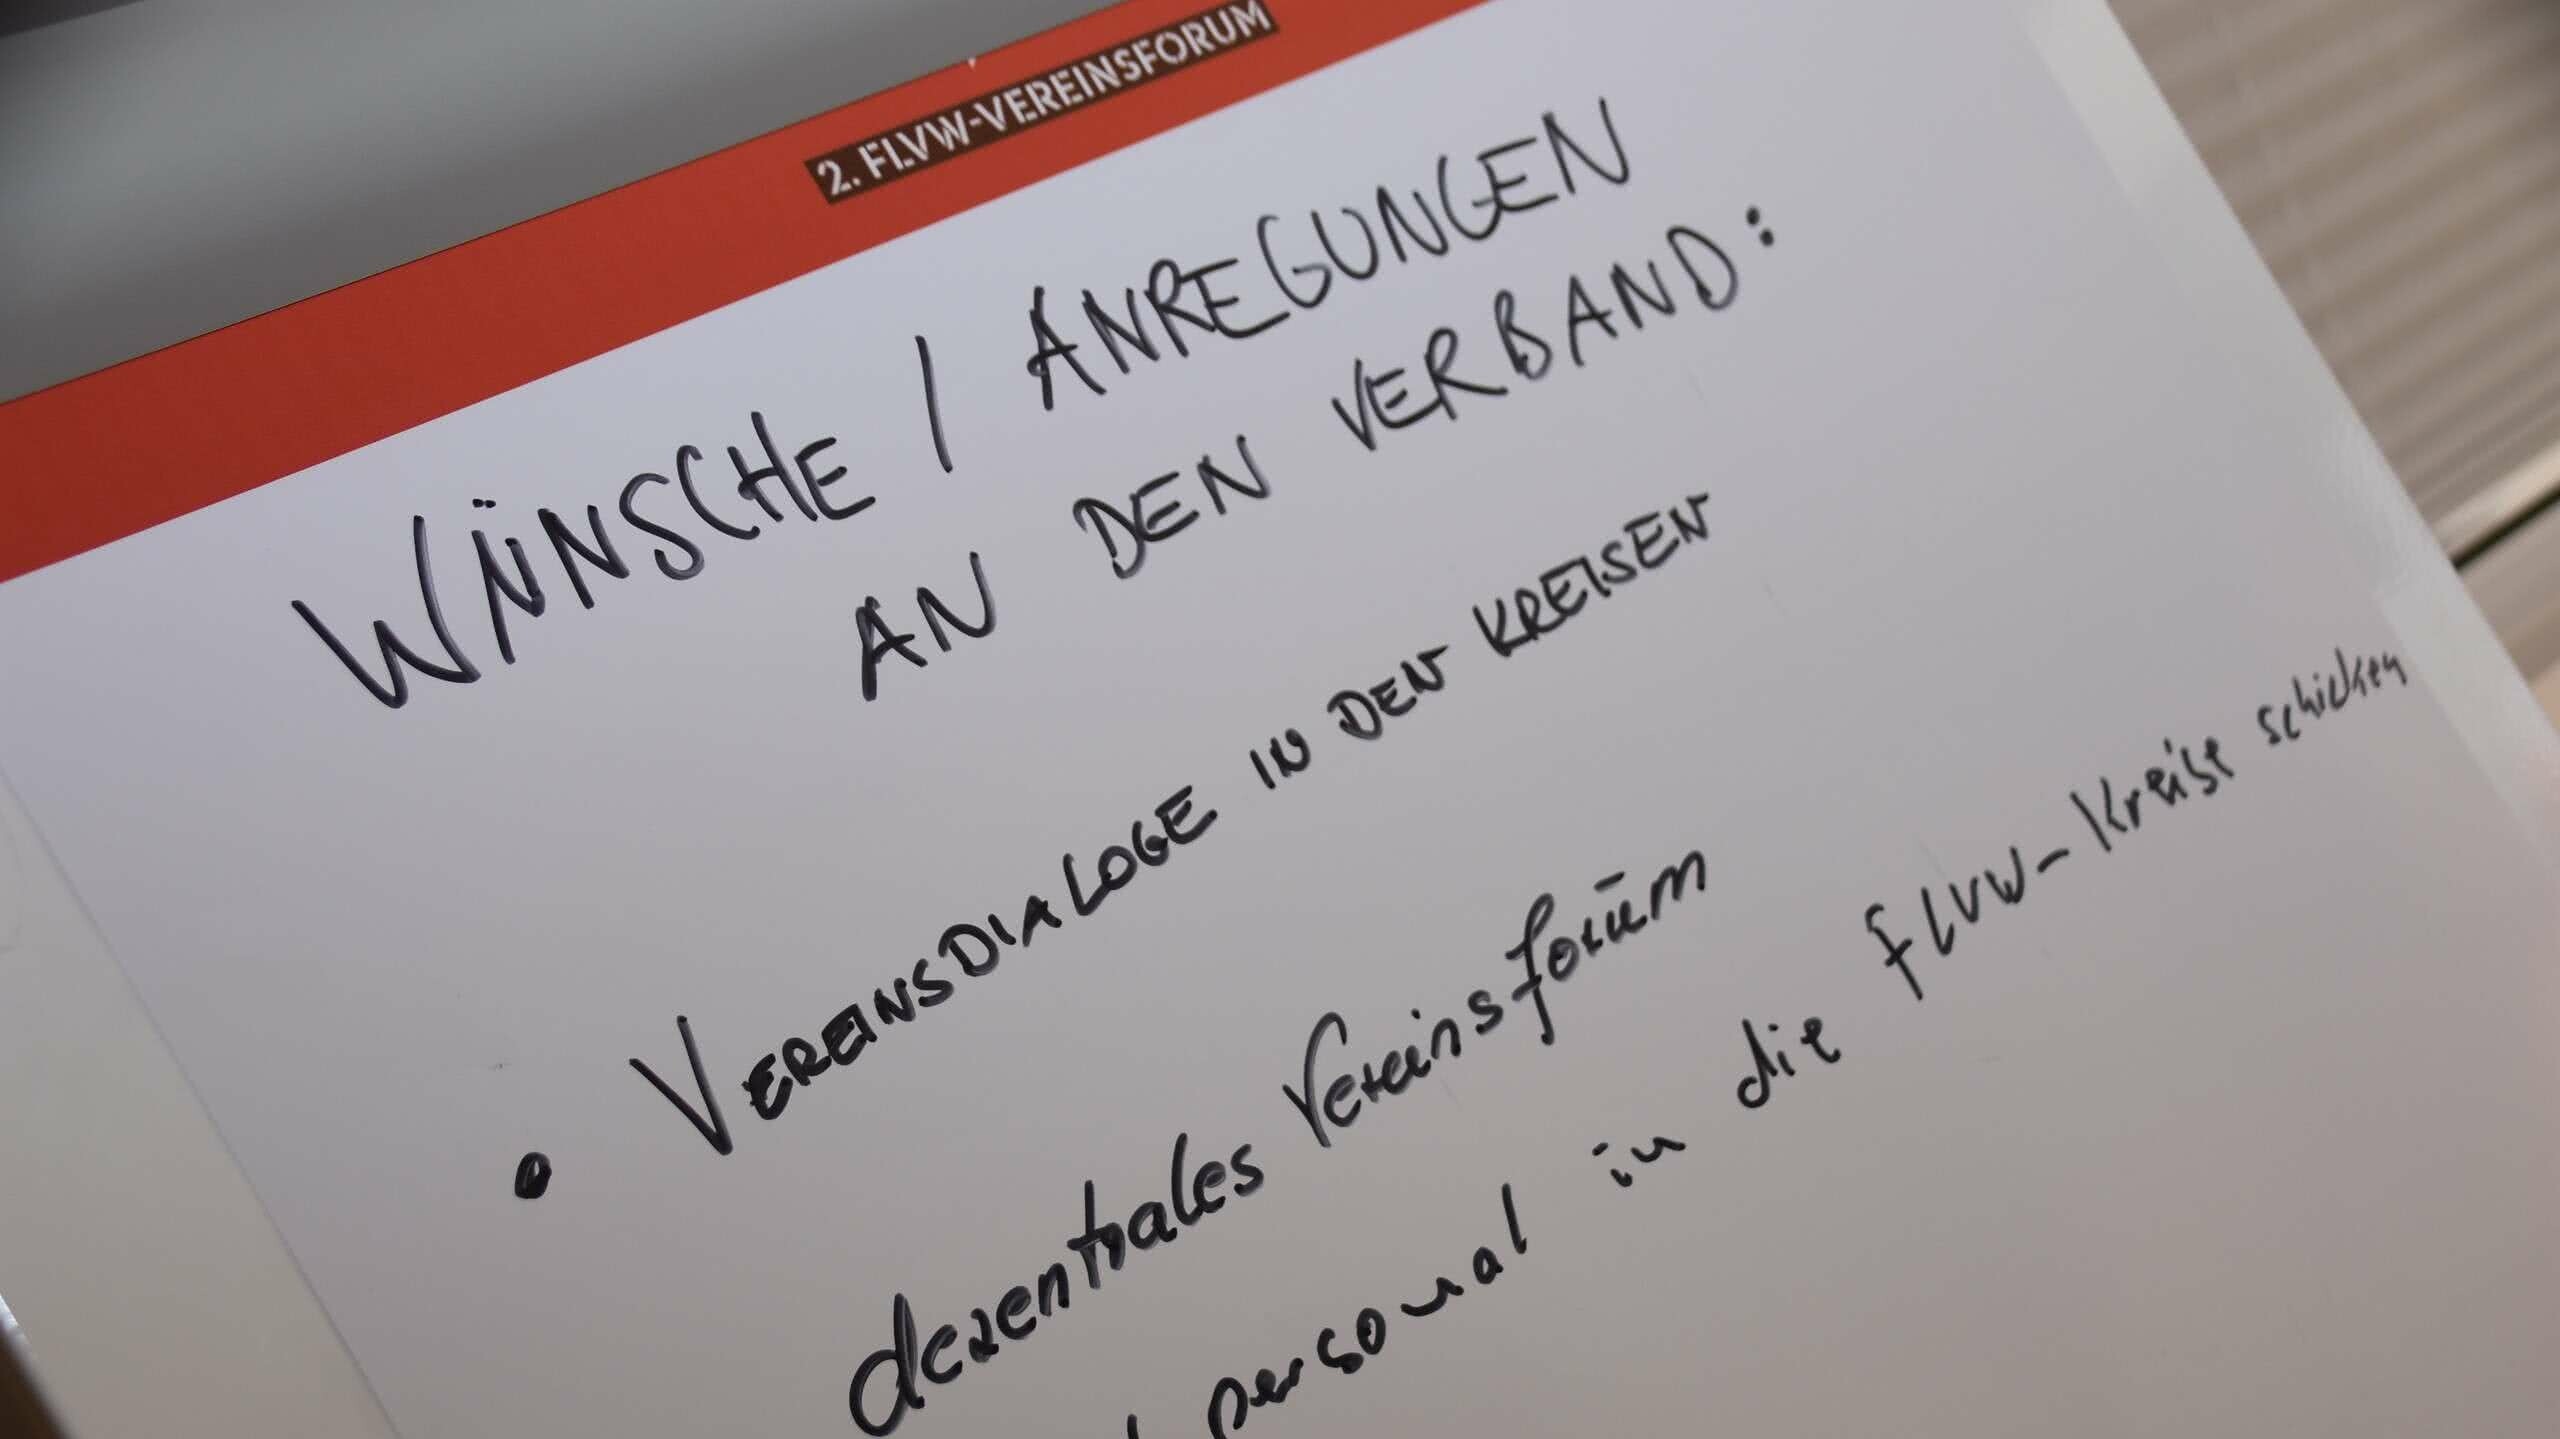 2. FLVW-VEREINSFORUM
WÜNSCHE / ANREGUNGEN
AN DEN VERBAND:
• VEREINSDIALOGE IN DEN KREISEN
dezentrales Vereinsforum
personal in die FLVW-Kreise schicken